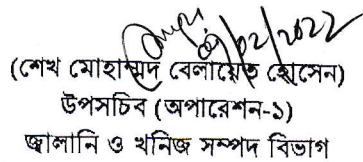 ০১/০২/২০২২
(শেখ মোহাম্মদ বেলায়েত হোসেন)
উপসচিব (অপারেশন-১)
জ্বালানি ও খনিজ সম্পদ বিভাগ